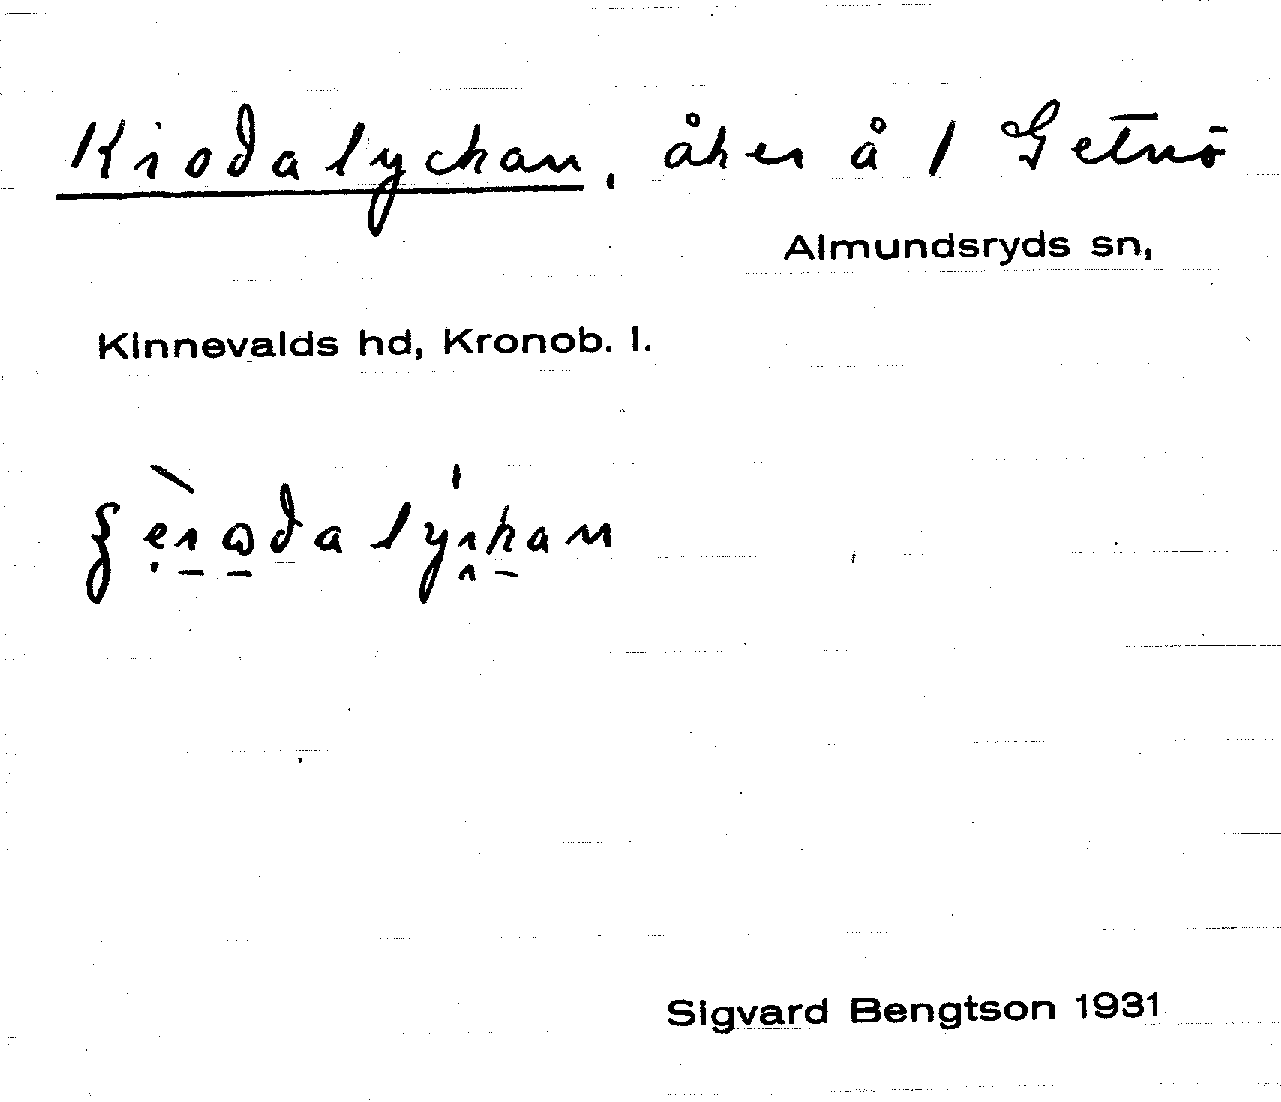 Kiodalyckan, åker å 1 Getnö
Almundsryds sn,
Kinnevalds hd, Kronob. l.
Sigvard Bengtson 1931